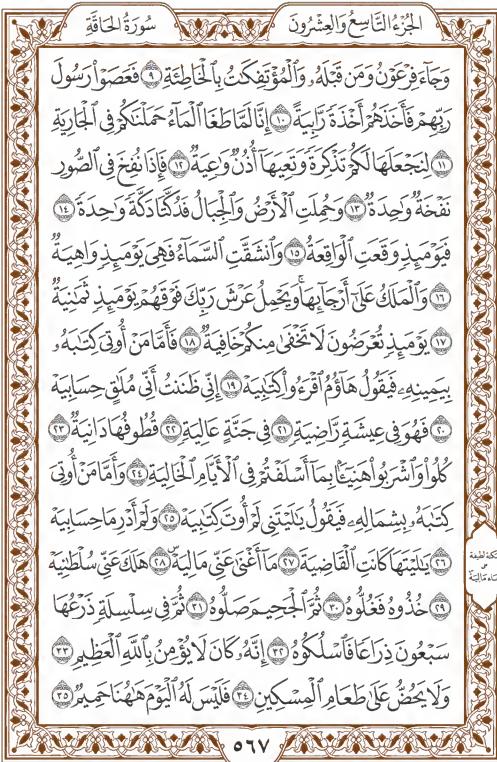 سُورَةُ الْحَاقَّةِ
الجُزْءُ التَّاسِعُ وَالعِشْرُونَ
وَجَآءَ فِرْعَوْنُ وَمَن قَبْلَهُۥ وَٱلْمُؤْتَفِكَٰتُ بِٱلْخَاطِئَةِ ٩ فَعَصَوْا۟ رَسُولَ
رَبِّهِمْ فَأَخَذَهُمْ أَخْذَةً رَّابِيَةً ١٠ إِنَّا لَمَّا طَغَا ٱلْمَآءُ حَمَلْنَٰكُمْ فِى ٱلْجَارِيَةِ
١١ لِنَجْعَلَهَا لَكُمْ تَذْكِرَةً وَتَعِيَهَآ أُذُنٌ وَٰعِيَةٌ ١٢ فَإِذَا نُفِخَ فِى ٱلصُّورِ
نَفْخَةٌ وَٰحِدَةٌ ١٣ وَحُمِلَتِ ٱلْأَرْضُ وَٱلْجِبَالُ فَدُكَّتَا دَكَّةً وَٰحِدَةً ١٤
فَيَوْمَئِذٍ وَقَعَتِ ٱلْوَاقِعَةُ ١٥ وَٱنشَقَّتِ ٱلسَّمَآءُ فَهِىَ يَوْمَئِذٍ وَاهِيَةٌ
١٦ وَٱلْمَلَكُ عَلَىٰٓ أَرْجَآئِهَا ۚ وَيَحْمِلُ عَرْشَ رَبِّكَ فَوْقَهُمْ يَوْمَئِذٍ ثَمَٰنِيَةٌ
١٧ يَوْمَئِذٍ تُعْرَضُونَ لَا تَخْفَىٰ مِنكُمْ خَافِيَةٌ ١٨ فَأَمَّا مَنْ أُوتِىَ كِتَٰبَهُۥ
بِيَمِينِهِۦ فَيَقُولُ هَآؤُمُ ٱقْرَءُوا۟ كِتَٰبِيَهْ ١٩ إِنِّى ظَنَنتُ أَنِّى مُلَٰقٍ حِسَابِيَهْ
٢٠ فَهُوَ فِى عِيشَةٍ رَّاضِيَةٍ ٢١ فِى جَنَّةٍ عَالِيَةٍ ٢٢ قُطُوفُهَا دَانِيَةٌ ٢٣
كُلُوا۟ وَٱشْرَبُوا۟ هَنِيٓـًٔۢا بِمَآ أَسْلَفْتُمْ فِى ٱلْأَيَّامِ ٱلْخَالِيَةِ ٢٤ وَأَمَّا مَنْ أُوتِىَ
كِتَٰبَهُۥ بِشِمَالِهِۦ فَيَقُولُ يَٰلَيْتَنِى لَمْ أُوتَ كِتَٰبِيَهْ ٢٥ وَلَمْ أَدْرِ مَا حِسَابِيَهْ
٢٦ يَٰلَيْتَهَا كَانَتِ ٱلْقَاضِيَةَ ٢٧ مَآ أَغْنَىٰ عَنِّى مَالِيَهْ ۜ ٢٨ هَلَكَ عَنِّى سُلْطَٰنِيَهْ
٢٩ خُذُوهُ فَغُلُّوهُ ٣٠ ثُمَّ ٱلْجَحِيمَ صَلُّوهُ ٣١ ثُمَّ فِى سِلْسِلَةٍ ذَرْعُهَا
سَبْعُونَ ذِرَاعًا فَٱسْلُكُوهُ ٣٢ إِنَّهُۥ كَانَ لَا يُؤْمِنُ بِٱللَّهِ ٱلْعَظِيمِ ٣٣
وَلَا يَحُضُّ عَلَىٰ طَعَامِ ٱلْمِسْكِينِ ٣٤ فَلَيْسَ لَهُ ٱلْيَوْمَ هَٰهُنَا حَمِيمٌ ٣٥
سكتة لطيفة
ماليه
٥٦٧